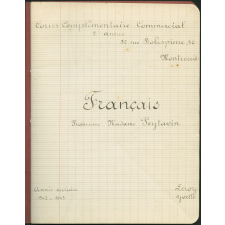 Cours Complémentaire Commercial
2e année
32 rue Robespierre, 32
Montreuil
Français
Professeur Madame Peytavin
Année scolaire
Leroy